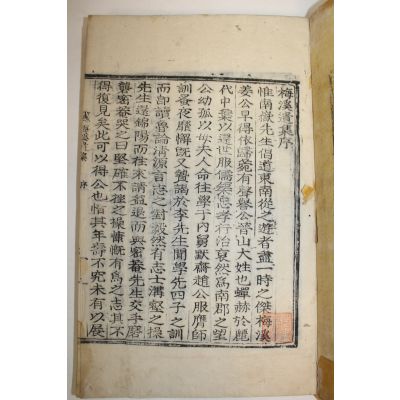 梅溪遺集序
惟南嶽先生倡道東南從之遊者盡一時之傑梅溪
姜公早得依歸菀有學譽公晉山大姓也蟬赫於麗
代中葉以還世服儒槼忠孝行治戛然爲南郡之望
公幼孤以母夫人命往學于內舅默齋趙公服膺師
訓蚤夜靡懈旣又贄謁於李先生聞學先四子之訓
而卽讀魯論溯源言志之對毅然有志士溝壑之操
先生還錦陽而往來請益還而與密菴先生交手磨
礱密菴哭之曰堅確不拯之操慷慨有爲之志其不
得復見矣此可以得公也惜其年壽不究未有以展